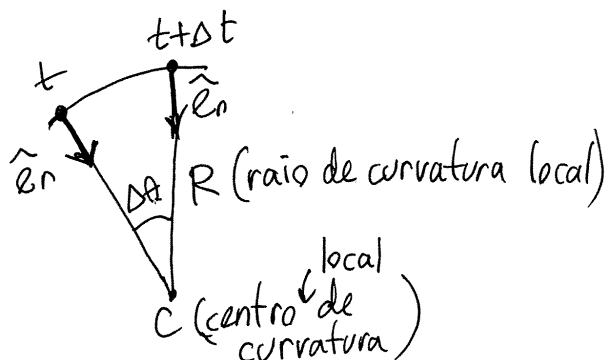 t
t+Δt
ê_n
ê_n
R (raio de curvatura local)
Δθ
local
C (centro de
curvatura)